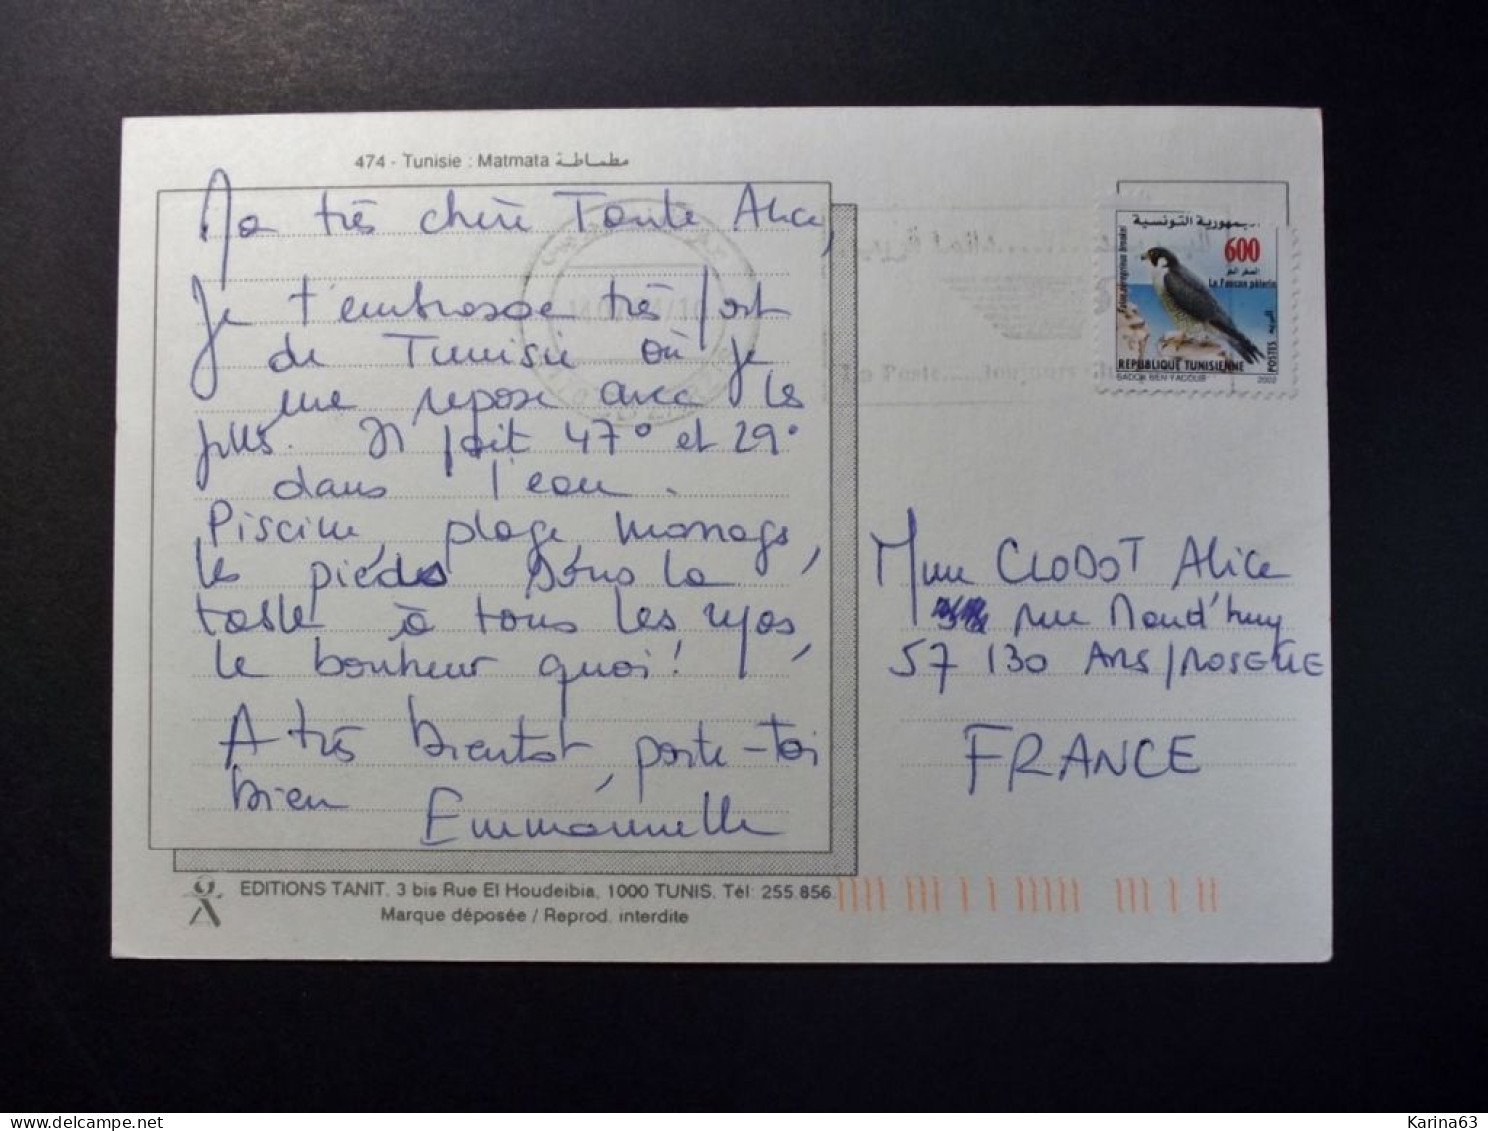 474 - Tunisie : Matmata مطماطة
Ma très chère Tante Alice,
Je t'embrasse très fort
de Tunisie où je
me repose avec les
puis. Il fait 47° et 29°
dans l'eau.
Piscine, plage, manags,
les pieds sous la
table à tous les repas,
le bonheur quoi!
A très bientôt, porte-toi
bien
Emmanuelle
EDITIONS TANIT. 3 bis Rue El Houdeibia, 1000 TUNIS. Tél: 255.856.
Marque déposée / Reprod. interdite
الجمهورية التونسية
600
الصقر الحر
Le Faucon pèlerin
Falco peregrinus brookei
البريد
POSTES
REPUBLIQUE TUNISIENNE
SADOK BEN YACOUB 2002
La Poste......toujours
Mme CLODOT Alice
rue Maud'huy
57 130 ARS/MOSELLE
FRANCE
Karina63